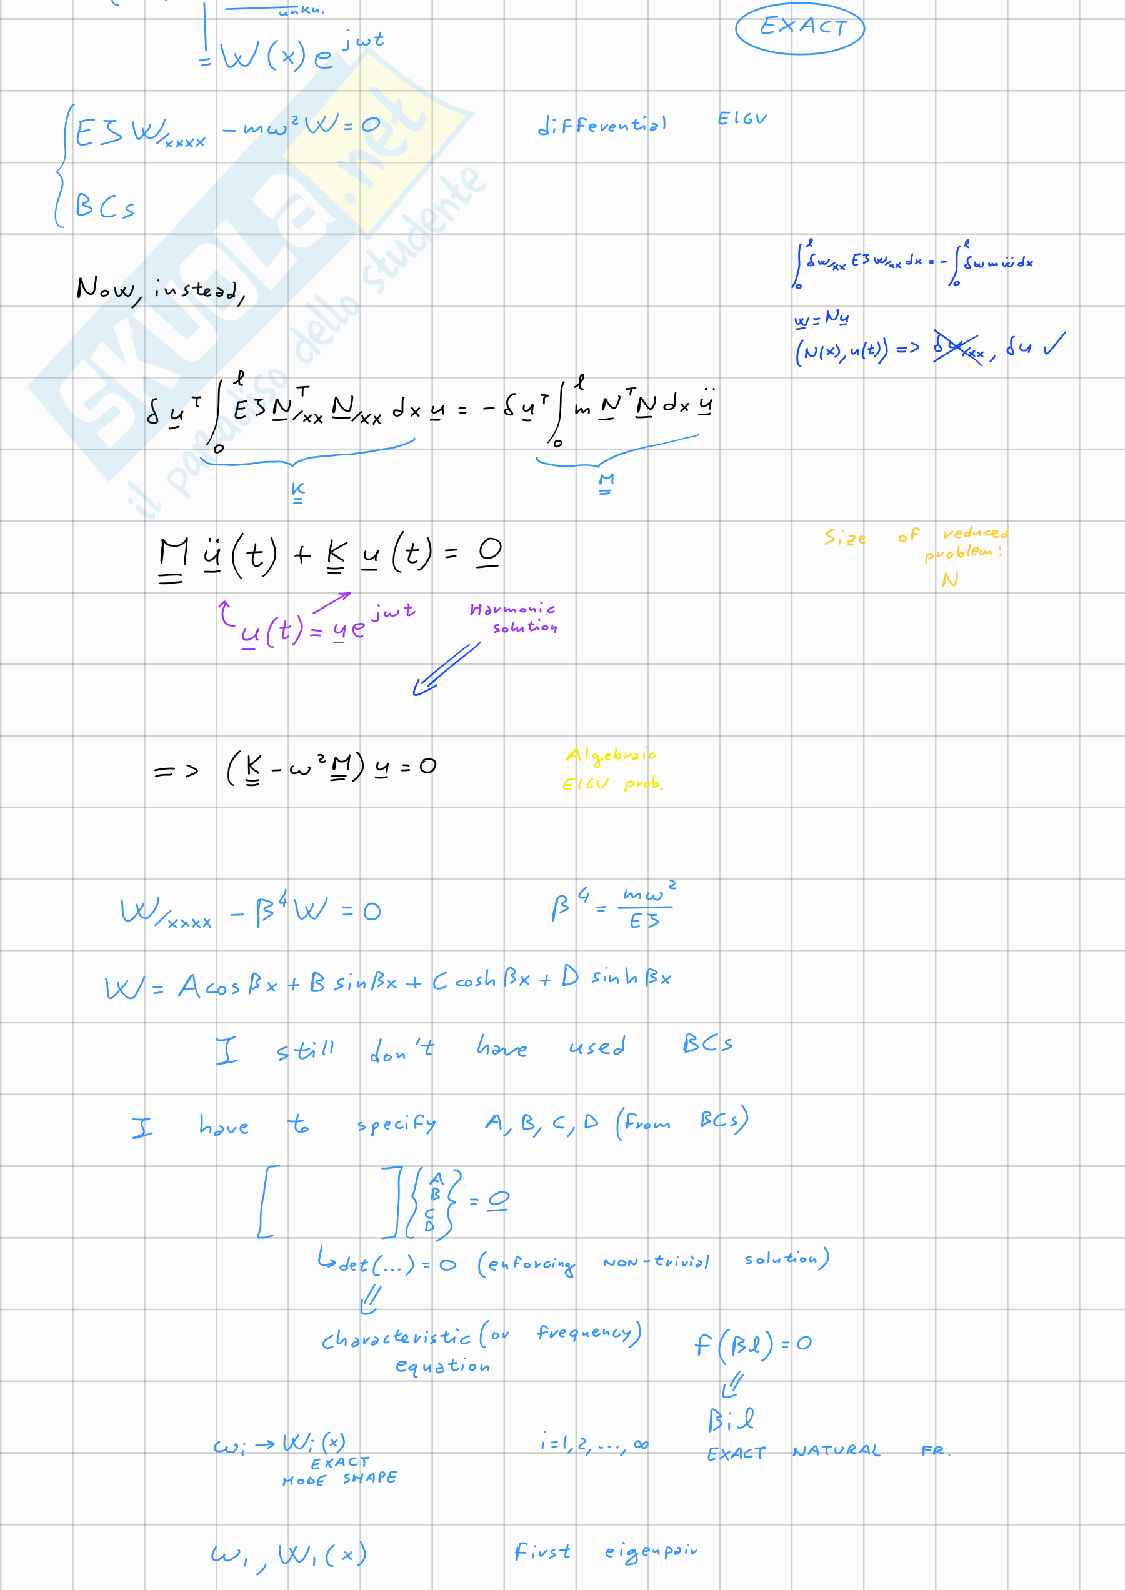 unkn.
= W(x) e^{jωt}
EXACT
EJ W/xxxx - mω² W = 0
differential EIGV
BCs
∫₀^l δw/xx EJ w/xx dx = - ∫₀^l δw m ẅ dx
Now, instead,
w = N u
(N(x), u(t)) => δu/xx, δu ✓
δu^T ∫₀^l EJ N^T/xx N/xx dx u = - δu^T ∫₀^l m N^T N dx ü
K
M
M ü(t) + K u(t) = 0
Size of reduced
problem:
N
u(t) = u e^{jωt}
Harmonic
solution
=> (K - ω² M) u = 0
Algebraic
EIGV prob.
W/xxxx - β⁴ W = 0
β⁴ = mω² / EJ
W = A cos βx + B sin βx + C cosh βx + D sinh βx
I still don't have used BCs
I have to specify A, B, C, D (from BCs)
[ ] { A B C D } = 0
↳ det(...) = 0 (enforcing non-trivial solution)
characteristic (or frequency)
equation
f(βl) = 0
βil
ωi → Wi(x)
i = 1, 2, ..., ∞
EXACT NATURAL FR.
EXACT
MODE SHAPE
ω₁, W₁(x)
First eigenpair
SKUOLA.net
il paradiso dello studente